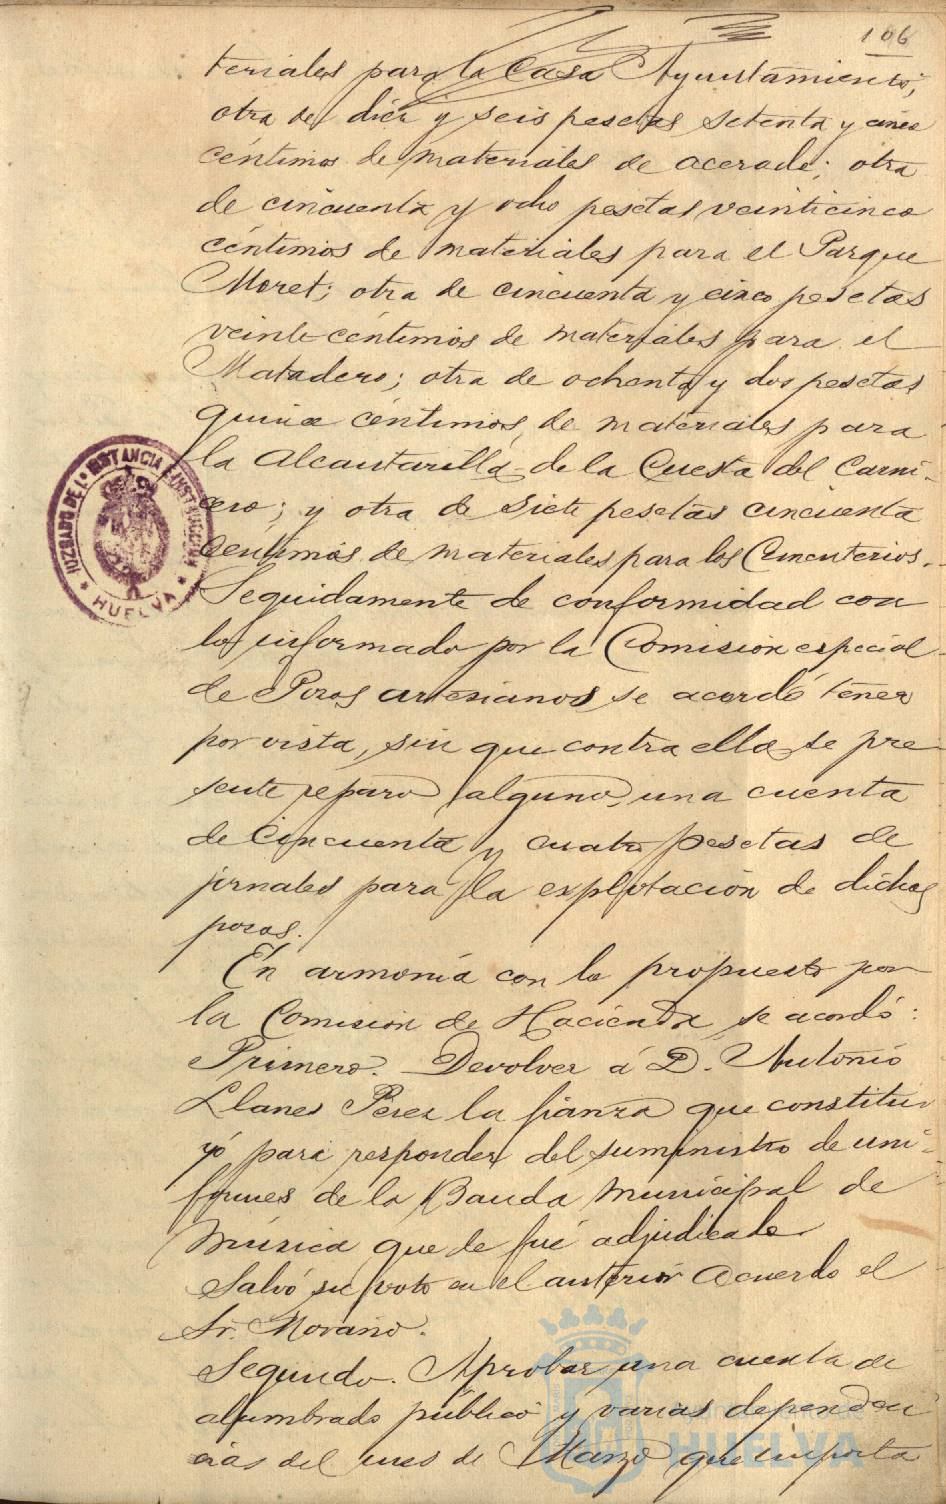 106
teriales para la Casa Ayuntamiento;
otra de diéz y seis pesetas setenta y cinco
céntimos de materiales de acerado; otra
de cincuenta y ocho pesetas veinticinco
céntimos de materiales para el Parque
Moret; otra de cincuenta y cinco pesetas
veinte céntimos de materiales para el
Matadero; otra de ochenta y dos pesetas
quince céntimos, de materiales para
la Alcantarilla de la Cuesta del Carni-
cero; y otra de siete pesetas cincuenta
centimos de materiales para los Cementerios.
Seguidamente de conformidad con
lo informado por la Comisión especial
de Pozos artesianos, se acordó tener
por vista, sin que contra ella se pre
sente reparo alguno, una cuenta
de cincuenta y cuatro pesetas de
jornales para la explotación de dichos
pozos.
En armonía con lo propuesto por
la Comisión de Hacienda, se acordó:
Primero. Devolver á D. Antonio
Llanes Pérez la fianza que constitu
yó para responder del suministro de uni-
formes de la Banda Municipal de
Música que le fué adjudicado
Salvó su voto en el anterior acuerdo el
Sr. Moraño.
Segundo. Aprobar una cuenta de
alumbrado público y varias dependen
cias del mes de Marzo que importa
JUZGADO DE 1ª INSTANCIA E INSTRUCCION
HUELVA
HUELVA